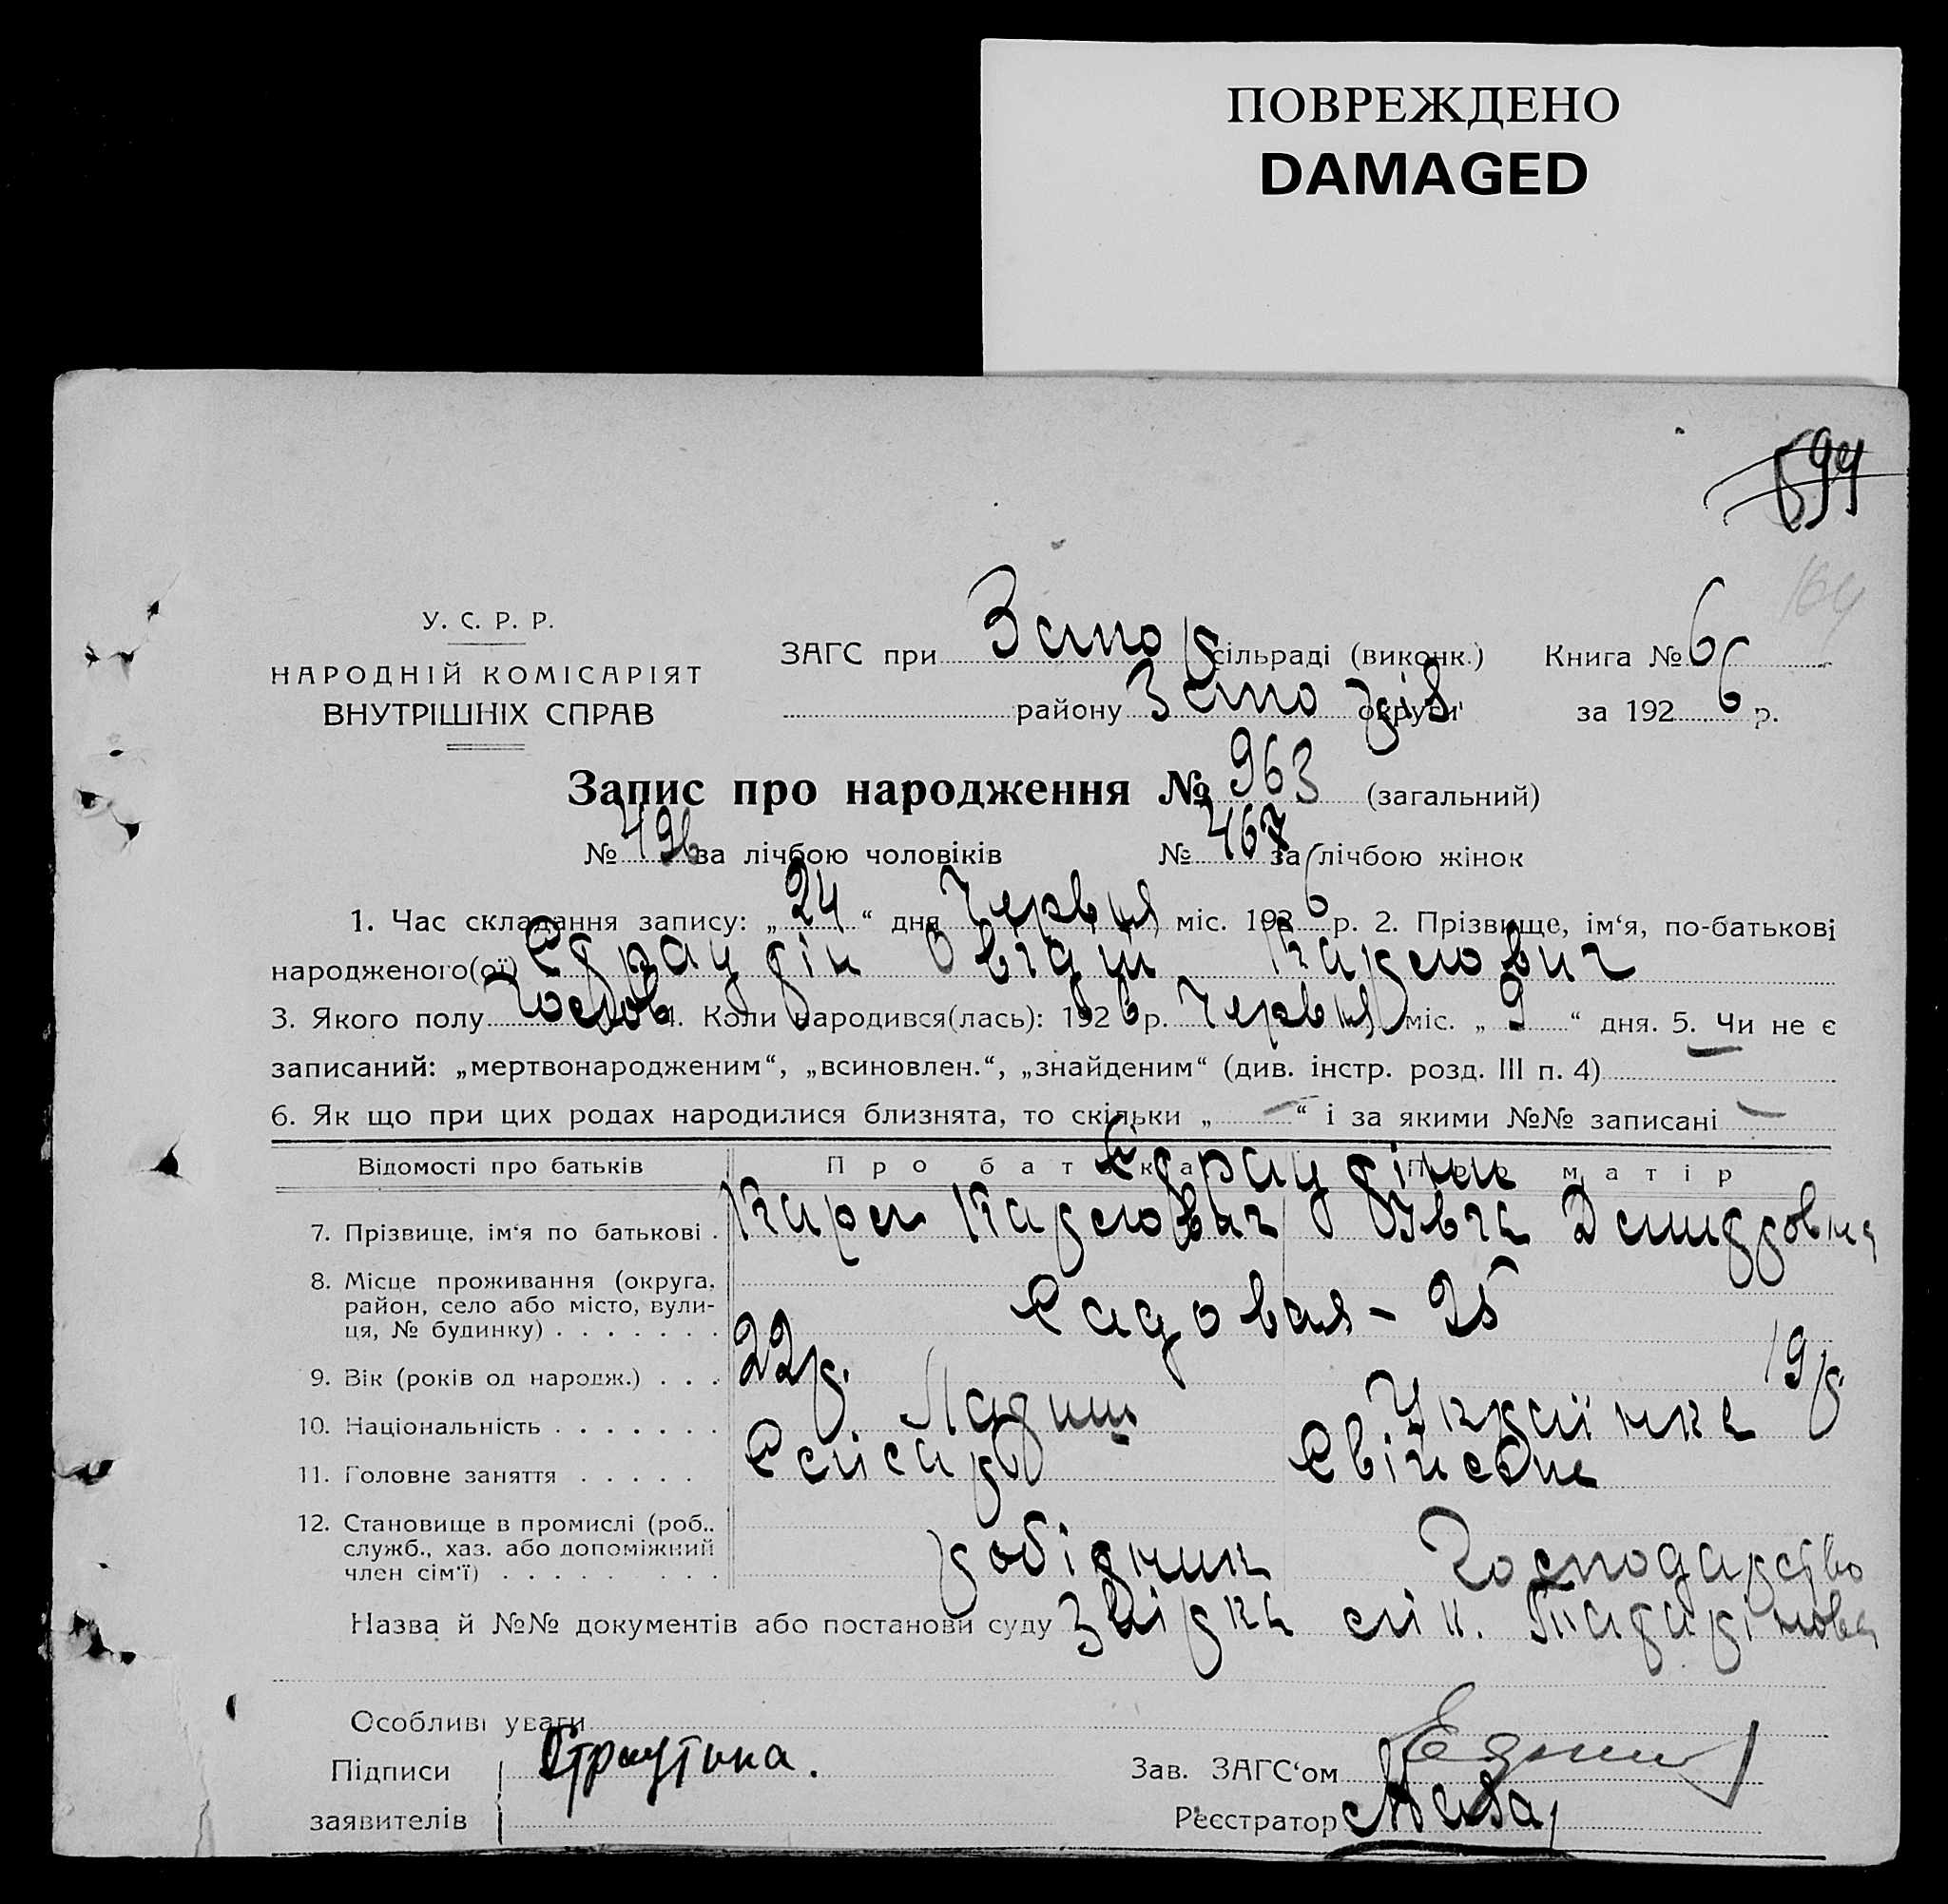 ПОВРЕЖДЕНО
DAMAGED
У. С. Р. Р.
НАРОДНІЙ КОМІСАРІЯТ
ВНУТРІШНІХ СПРАВ
ЗАГС при Запор сільраді (виконк.) Книга № 6
району Запо різ округи за 1926 р.
Запис про народження № 963 (загальний)
№ 496 за лічбою чоловіків № 467 за лічбою жінок
1. Час складання запису: „24“ дня Червня міс. 1926 р. 2. Прізвище, ім‘я, по-батькові
народженого(ої) Карлович
3. Якого полу Чолов 4. Коли народився(лась): 1926 р. Червня міс. „9“ дня. 5. Чи не є
записаний: „мертвонародженим“, „всиновлен.“, „знайденим“ (див. інстр. розд. III п. 4)
6. Як що при цих родах народилися близнята, то скільки „ — “ і за якими №№ записані —
Відомості про батьків Про батька Про матір
7. Прізвище, ім‘я по батькові . Карл Карлович Демидовна
8. Місце проживання (округа,
район, село або місто, вули-
ця, № будинку) . . . . . . . Садовая - 25
9. Вік (років од народж.) . . . 22 р. 19 р.
10. Національність . . . . . . . Латиш Українка
11. Головне заняття . . . . . Слюсарь Свійсоне
12. Становище в промислі (роб.,
служб., хаз. або допоміжний
член сім‘ї) . . . . . . . . . робідник Господарство
Назва й №№ документів або постанови суду Звідка лік.
Особливі уваги
Підписи Зав. ЗАГС‘ом
заявителів Реєстратор